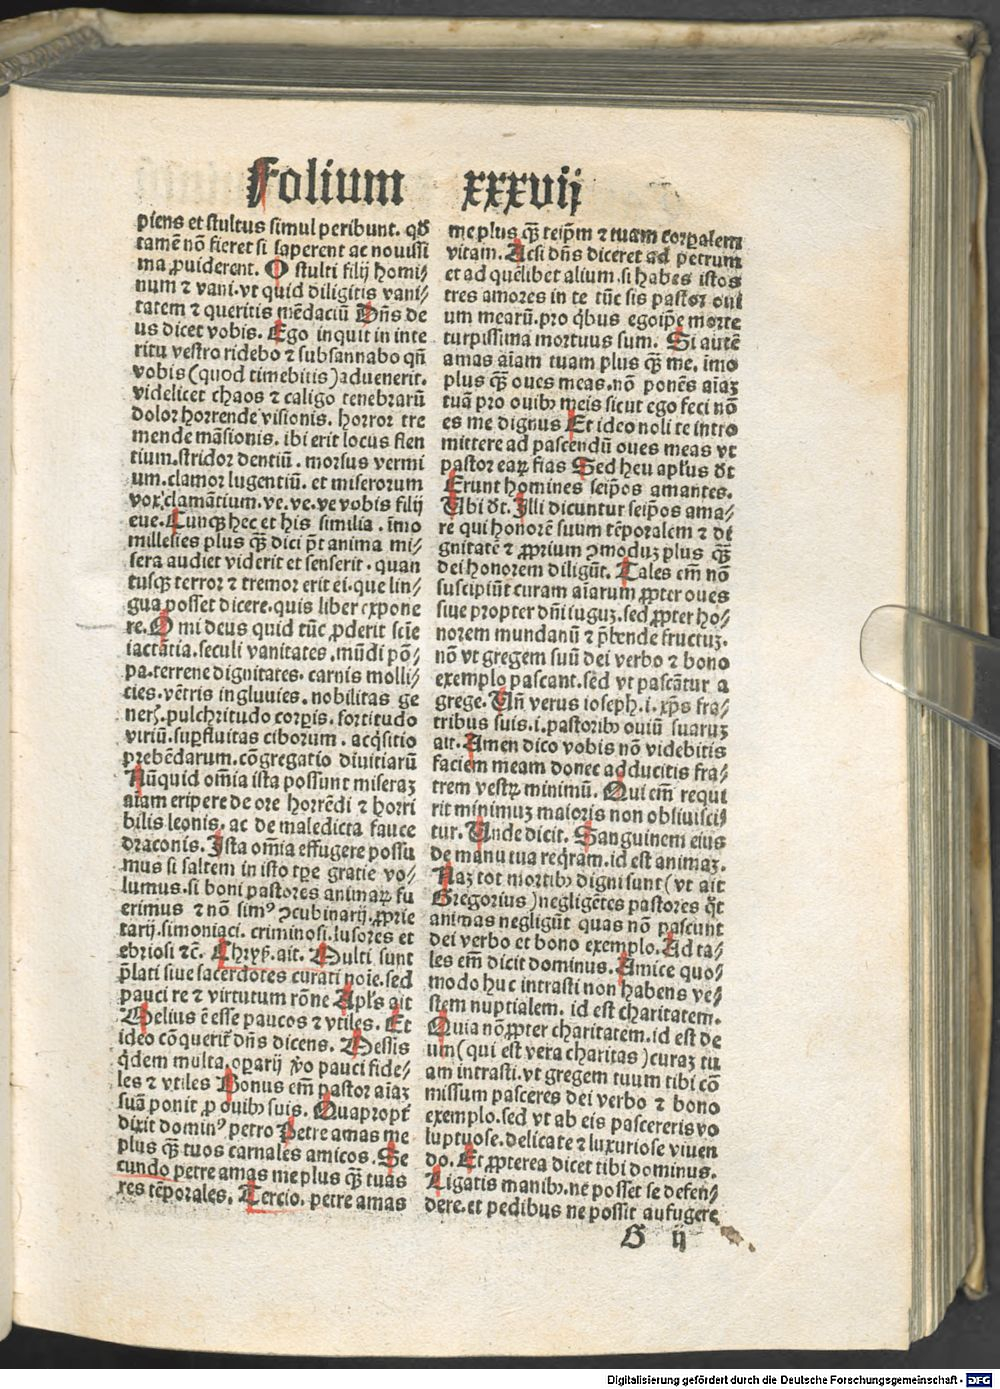 Folium xxxvij
piens et stultus simul peribunt. qđ
tamē nō fieret si saperent ac nouissi
ma ꝓuiderent. O stulti filij homi⸗
num ⁊ vani. vt quid diligitis vani⸗
tatem ⁊ queritis mēdaciū Dn̄s de
us dicet vobis. Ego inquit in inte
ritu vestro ridebo ⁊ subsannabo qn̄
vobis (quod timebitis) aduenerit.
videlicet chaos ⁊ caligo tenebrarū
dolor horrende visionis. horror tre
mende māsionis. ibi erit locus flen
tium. stridor dentiū. morsus vermi
um. clamor lugentiū. et miserorum
vox clamātium. ve. ve. ve vobis filij
eue. Cuncqꝫ hec et his similia. īmo
millesies plus qꝫ̄ dici pōt anima mi⸗
sera audiet viderit et senserit. quan
tusqꝫ terror ⁊ tremor erit ei. que lin⸗
gua posset dicere. quis liber expone
re. O mi deus quid tūc ꝓderit scīe
iactātia. seculi vanitates. mūdi pō⸗
pa. terrene dignitates. carnis molli⸗
cies. vētris ingluuies. nobilitas ge
neris. pulchritudo corꝑis. fortitudo
viriū. suꝑfluitas ciborum. acq̄sitio
prebēdarum. cōgregatio diuitiarū
Nūquid om̄ia ista possunt miseraꝫ
aīam eripere de ore horrēdi ⁊ horri
bilis leonis. ac de maledicta fauce
draconis. Ista om̄ia effugere possu
mus si saltem in isto tꝑe gratie vo⸗
lumus. si boni pastores animaꝝ fu
erimus ⁊ nō simꝰ ꝯcubinarij. ꝓprie
tarij. simoniaci. criminosi. lusores et
ebriosi ⁊c̄. Chryꝭ. ait. Multi sunt
p̄lati siue sacerdotes curati noīe. sed
pauci re ⁊ virtutum rōne Apl̄s ait
Melius ē esse paucos ⁊ vtiles. Et
ideo cōquerit᷑ dn̄s dicens. Messis
q̄dem multa. oꝑarij v̄o pauci fide⸗
les ⁊ vtiles Bonus em̄ pastor aīaꝫ
suā ponit ꝓ ouibꝫ suis. Quapropt᷑
dixit dominꝰ petro Petre amas me
plus qꝫ̄ tuos carnales amicos. Se
cundo petre amas me plus qꝫ̄ tuas
res tēporales. Tercio. petre amas
me plus qꝫ̄ teip̄m ⁊ tuam corꝑalem
vitam. Acsi dn̄s diceret ad petrum
et ad quēlibet alium. si habes istos
tres amores in te tūc sis pastor oui
um mearū. pro q̄bus egoip̄e morte
turpissima mortuus sum. Si autē
amas aīam tuam plus qꝫ̄ me. īmo
plus qꝫ̄ oues meas. nō ponēs aīaꝫ
tuā pro ouibꝫ meis sicut ego feci nō
es me dignus Et ideo noli te intro
mittere ad pascendū oues meas vt
pastor eaꝝ fias Sed heu apl̄us dt̄
Erunt homines seip̄os amantes.
Vbi dt̄. Illi dicuntur seip̄os ama⸗
re qui honorē suum tēporalem ⁊ di
gnitatē ⁊ ꝓprium ꝯmoduꝫ plus qꝫ̄
dei honorem diligūt. Tales em̄ nō
suscipiūt curam aīarum ꝓpter oues
siue propter dn̄i iuguꝫ. sed ꝓpter ho⸗
norem mundanū ⁊ p̄bende fructuꝫ.
nō vt gregem suū dei verbo ⁊ bono
exemplo pascant. sed vt pascātur a
grege. Vn̄ verus ioseph. i. xp̄s fra⸗
tribus suis. i. pastoribꝫ ouiū suaruꝫ
ait. Amen dico vobis nō videbitis
faciem meam donec adducitis fra⸗
trem vestꝝ minimū. Qui em̄ requi
rit minimuꝫ maioris non obliuisci⸗
tur. Vnde dicit. Sanguinem eius
de manu tua req̄ram. id est animaꝫ.
Naꝫ tot mortibꝫ digni sunt (vt ait
Gregorius) negligētes pastores qt̄
animas negligūt quas nō pascunt
dei verbo et bono exemplo. Ad ta⸗
les em̄ dicit dominus. Amice quo⸗
modo huc intrasti non habens ve⸗
stem nuptialem. id est charitatem.
Quia nō ꝓpter charitatem. id est de
um (qui est vera charitas) curaꝫ tu
am intrasti. vt gregem tuum tibi cō
missum pasceres dei verbo ⁊ bono
exemplo. sed vt ab eis pascereris vo
luptuose. delicate ⁊ luxuriose viuen
do. Et ꝓpterea dicet tibi dominus.
Ligatis manibꝫ. ne posset se defen⸗
dere. et pedibus ne possit aufugere
G ij
Digitalisierung gefördert durch die Deutsche Forschungsgemeinschaft - DFG